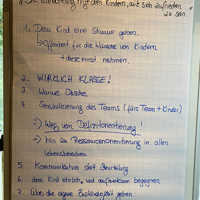 mit den Kindern, mit sich zufrieden
zu sein
1. Dem Kind eine Stimme geben.
für die Wünsche von Kindern
+ diese ernst nehmen.
2. WIRKLICH KLASSE!
3. Warme Dusche
4. Sensibilisierung des Teams (fürs Team + Kinder)
→) Weg von Defizitorientierung!
→) Hin zu Ressourcenorientierung in allen
Lebensbereichen
5. Kommunikation statt Beurteilung
6. dem Kind ehrlich, und aufmerksam begegnen
7. über die eigene Befindlichkeit geben